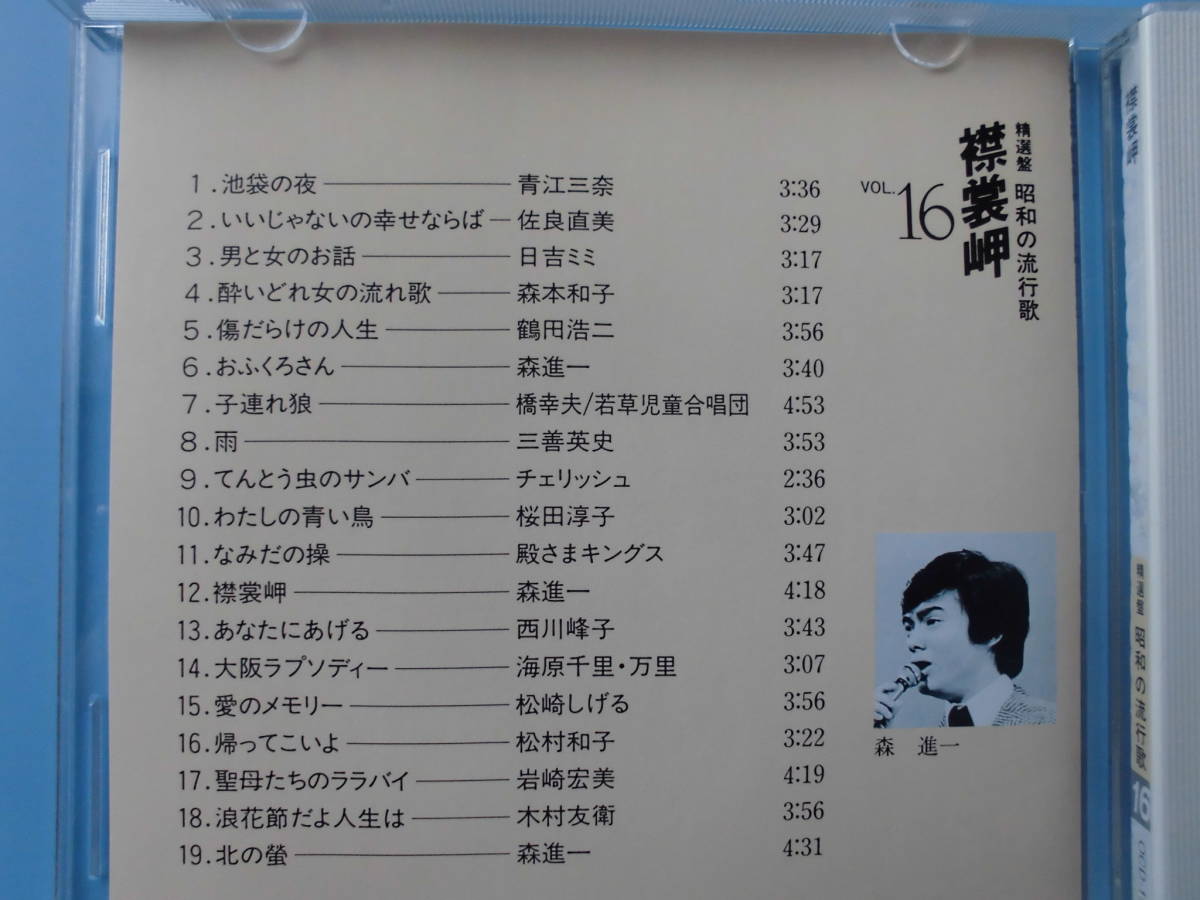 精選盤 昭和の流行歌
襟裳岬
VOL.16
1.池袋の夜 青江三奈 3:36
2.いいじゃないの幸せならば 佐良直美 3:29
3.男と女のお話 日吉ミミ 3:17
4.酔いどれ女の流れ歌 森本和子 3:17
5.傷だらけの人生 鶴田浩二 3:56
6.おふくろさん 森進一 3:40
7.子連れ狼 橋幸夫/若草児童合唱団 4:53
8.雨 三善英史 3:53
9.てんとう虫のサンバ チェリッシュ 2:36
10.わたしの青い鳥 桜田淳子 3:02
11.なみだの操 殿さまキングス 3:47
12.襟裳岬 森進一 4:18
13.あなたにあげる 西川峰子 3:43
14.大阪ラプソディー 海原千里・万里 3:07
15.愛のメモリー 松崎しげる 3:56
16.帰ってこいよ 松村和子 3:22
17.聖母たちのララバイ 岩崎宏美 4:19
18.浪花節だよ人生は 木村友衛 3:56
19.北の螢 森進一 4:31
森 進一
襟裳岬
精選盤 昭和の流行歌
16